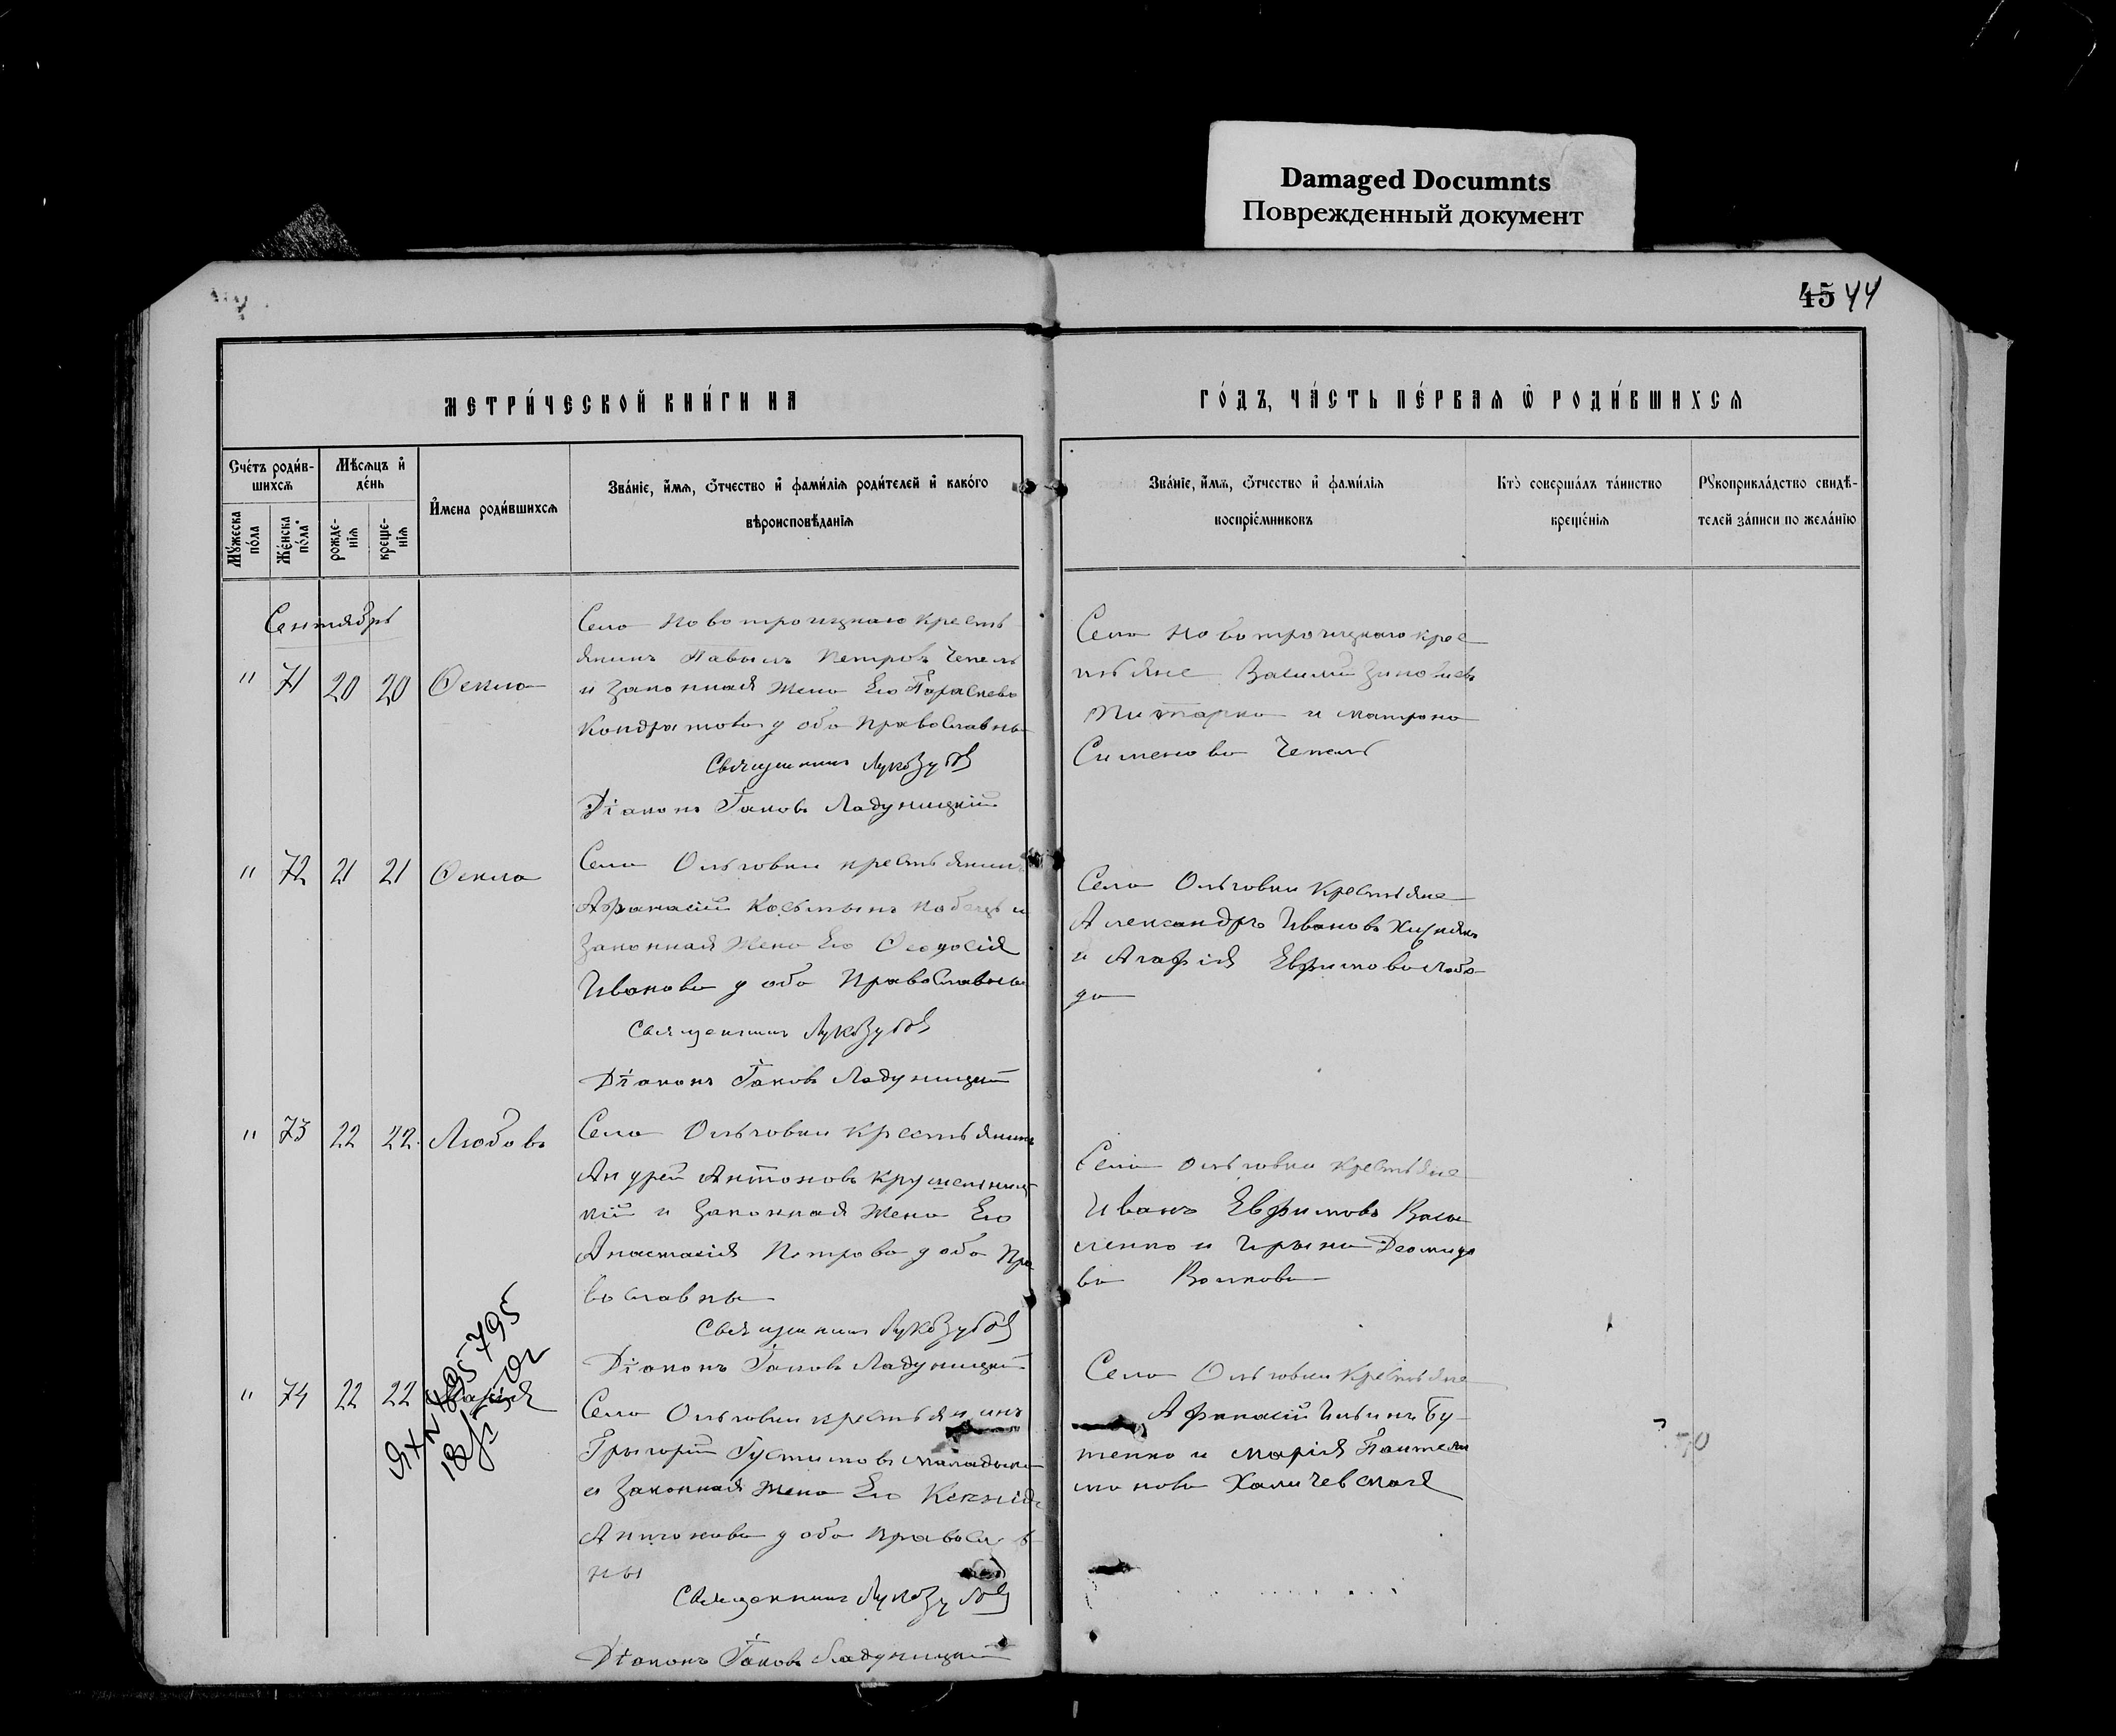 Damaged Documnts
Поврежденный документ
45 44
МЕТРИ́ЧЕСКОЙ КНИ́ГИ НА
ГО́ДЪ, ЧА́СТЬ ПЕ́РВАЯ Ѡ РОДИ́ВШИХСЯ
Сче́тъ роди́в-
шихся
Мѣсяцъ и҆
де́нь
Му́жеска
по́ла
Же́нска
по́ла
рожде-
нїя
креще-
нїя
И҆мена роди́вшихся
Зва́нїе, и҆́мя, ѻ҆́тчество и҆ фами́лїя роди́телей и҆ како́го
вѣроисповѣ́данїя
Зва́нїе, и҆́мя, ѻ҆́тчество и҆ фами́лїя
воспрїе́мниковъ
Кто̀ соверша́лъ та́инство
креще́нїя
Рꙋкоприкла́дство свидѣ́-
телей за́писи по жела́нїю
Сентябрь
" 71 20 20 Ѳекла
Села Новотроицкаго кресть
янинъ Павылъ Петровъ Чепель
и законная жена Его Параскева
Кондратова у оба Православны
Священникъ Лука Зубов
Діаконъ Іаковъ Ладуницкій
Села Новотроицкаго крес
тьяне Василий Зиновиевъ
Титарко и Матрона
Сименова Чепель
" 72 21 21 Ѳекла
Села Ольговки крестьянинъ
Афанасий Косьмынъ и
законная жена Его Ѳеодосія
Иванова у оба Православны
Священникъ Лука Зубов
Діаконъ Іаковъ Ладуницкий
Села Ольговки Крестьяне
Александръ Ивановъ
и Агафія Евфимова Лобо
да
" 73 22 22 Любовь
Села Ольговки крестьянинъ
Андрей Антоновъ Крушельниц
кий и Законная жена Его
Анастасія Петрова у оба Пра
вославны
Священникъ Лука Зубов
Діаконъ Іаковъ Ладуницкий
Села Ольговки крестьяне
Иванъ Евфимовъ Васи
ленко и Ирына Деомидо
ва Волкова
" 74 22 22 Марія
ЯХ №
Села Ольговки крестьянинъ
Грыгорий Густиновъ
и Законная жена Его Ксенія
Антонова у оба Правосла в
ны
Священникъ Лука Зубов
Діаконъ Іаковъ Ладуницкий
Села Ольговки крестьяне
Афанасий Ильинъ Бу-
тенко и Марія Пантели
монова Халичевская